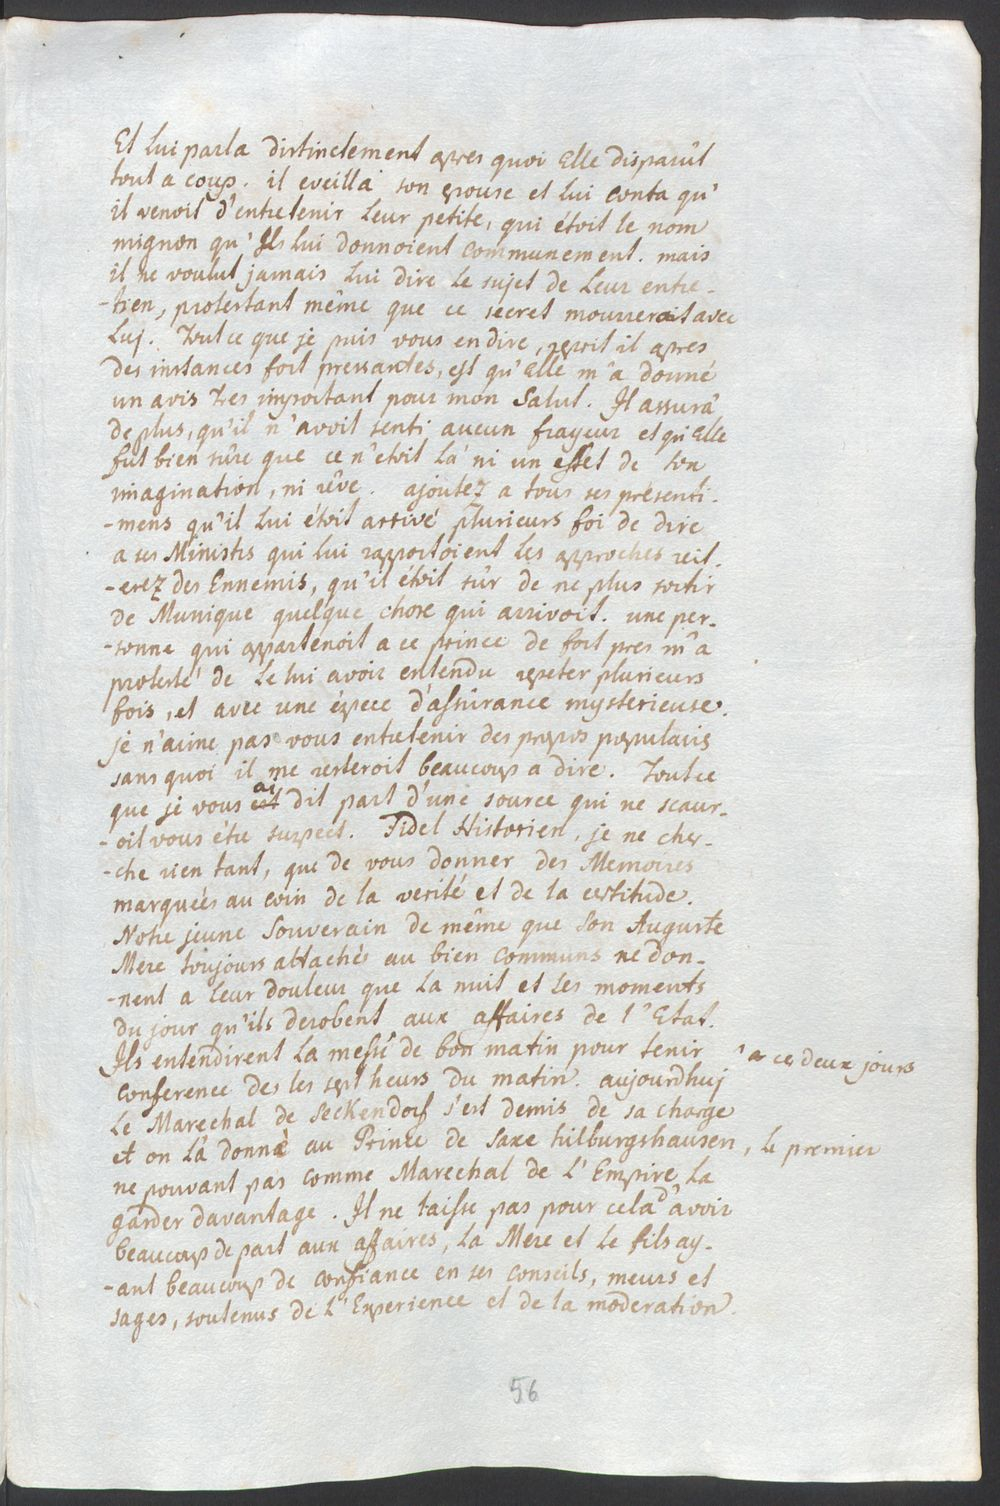 Et lui parla distinctement apres quoi Elle disparût
tout a coup. il eveilla son epouse et lui conta qu'
il venoit d'entretenir leur petite, qui étoit le nom
mignon qu'Ils lui donnoient communement. mais
il ne voulut jamais lui dire le sujet de leur entre-
-tien, protestant même que ce secret mourreroit avec
Luj. Tout ce que je puis vous en dire, reprit il apres
des instances fort pressantes, est qu'Elle m'a donné
un avis tres important pour mon Salut. Il assura
de plus, qu'il n'avoit senti aucun frayeur et qu'Elle
fut bien sûre que ce n'etoit là ni un effet de son
imagination, ni rêve. ajoutez a tous ses presenti-
-mens qu'il lui étoit arrivé plusieurs foi de dire
a ses Ministrs qui lui rapportoient les approches reit-
-erez des Ennemis, qu'il étoit sûr de ne plus sortir
de Munique quelque chose qui arrivoit. une per-
-sonne qui appartenoit a ce prince de fort pres m'a
protesté de le lui avoir entendu repeter plusieurs
fois, et avec une éspece d'assûrance mysterieuse.
je n'aime pas vous entretenir des propos populairs
sans quoi il me resteroit beaucoup a dire. Tout ce
que je vous ai dit part d'une source qui ne scaur-
-oit vous étre suspect. Fidel Historien, je ne cher-
-che rien tant, que de vous donner des Memoires
marquées au coin de la verité et de la certitude.
Notre jeune Souverain de même que son Auguste
Mere toujours attachés au bien communs ne don-
-nent a leur douleur que la nuit et les moments
du jour qu'ils derobent aux affaires de l'Etat.
Ils entendirent la messe de bon matin pour tenir ' a ces deux jours
conference des les sept heurs du matin. aujourdhuj
Le Marechal de Seckendorf s'est demis de sa charge
et on l'à donné au Prince de Saxe hilburgshausen, le premier
ne pouvant pas comme Marechal de L'Empire la
garder davantage. Il ne laisse pas pour cela d'avoir
beaucoup de part aux affaires, la Mere et le fils ay-
-ant beaucoup de confiance en ses conseils, meurs et
sages, soutenus de L'Experience et de la moderation.
56